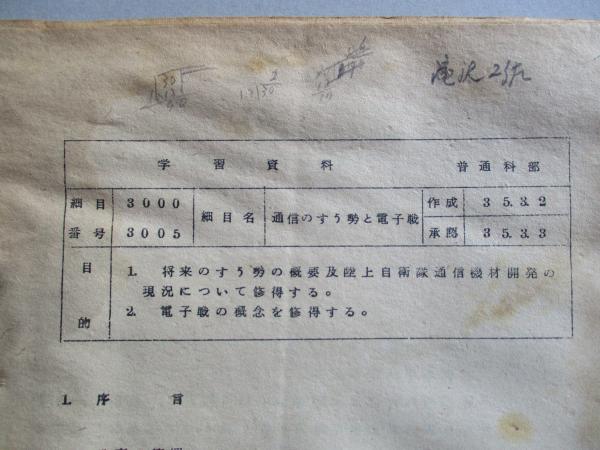 滝沢2佐
学習資料 普通科部
細目 3000 細目名 通信のすう勢と電子戦 作成 35.3.2
番号 3005 承認 35.3.3
目的
1. 将来のすう勢の概要及陸上自衛隊通信機材開発の
現況について修得する。
2. 電子戦の概念を修得する。
1. 序言